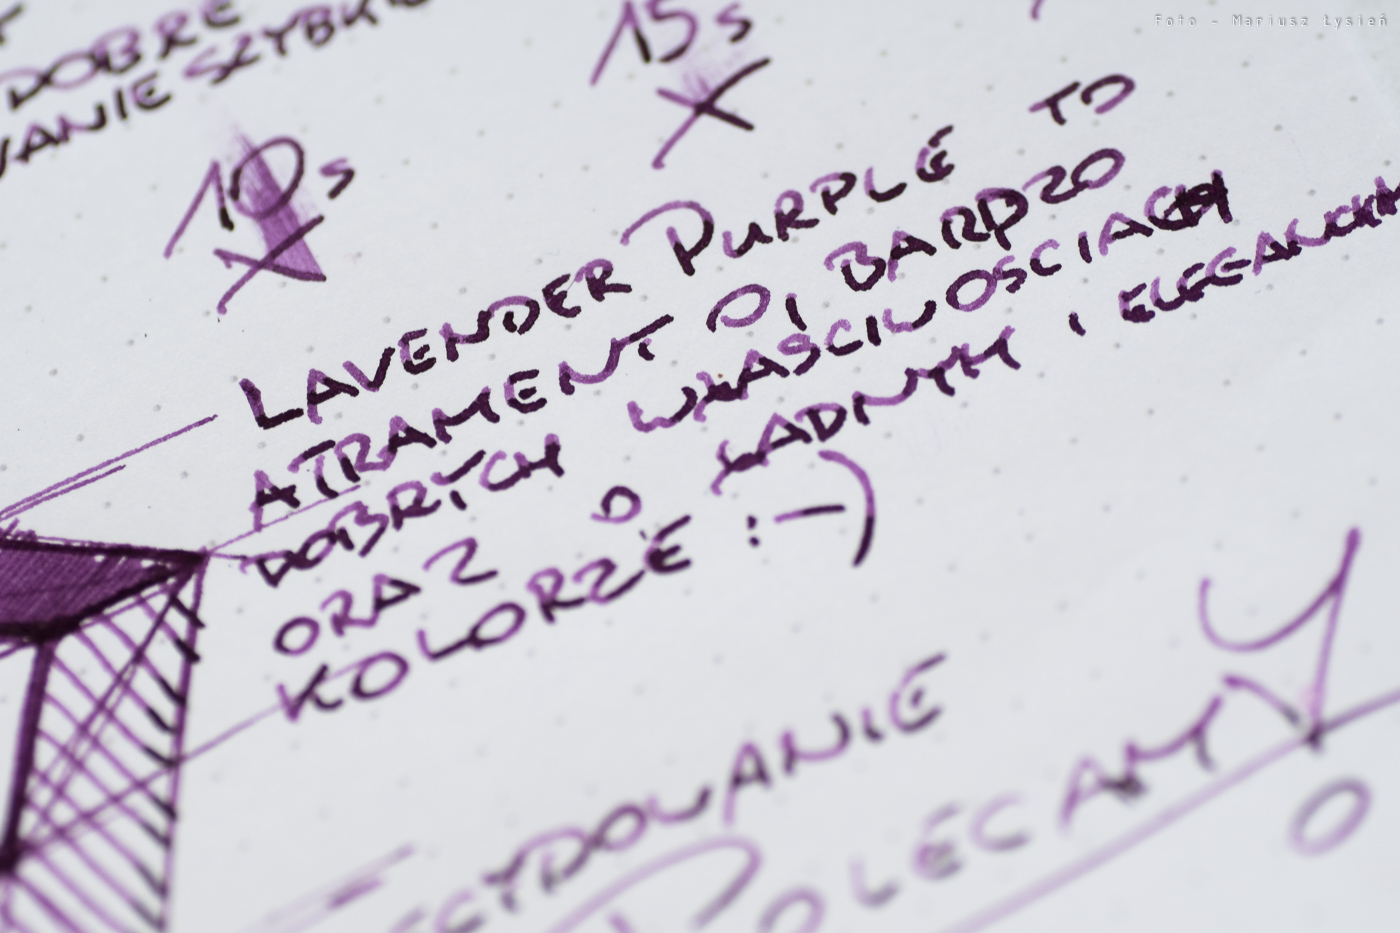 Foto - Mariusz Łysień
DOBRE
WANIE SZYBKO
15s
10s
LAVENDER PURPLE TO
ATRAMENT O, BARDZO
DOBRYCH WŁAŚCIWOSCIACH
ORAZ O ŁADNYM I ELEGANCKIM
KOLORZE :-)
ECYDOWANIE
POLECAMY